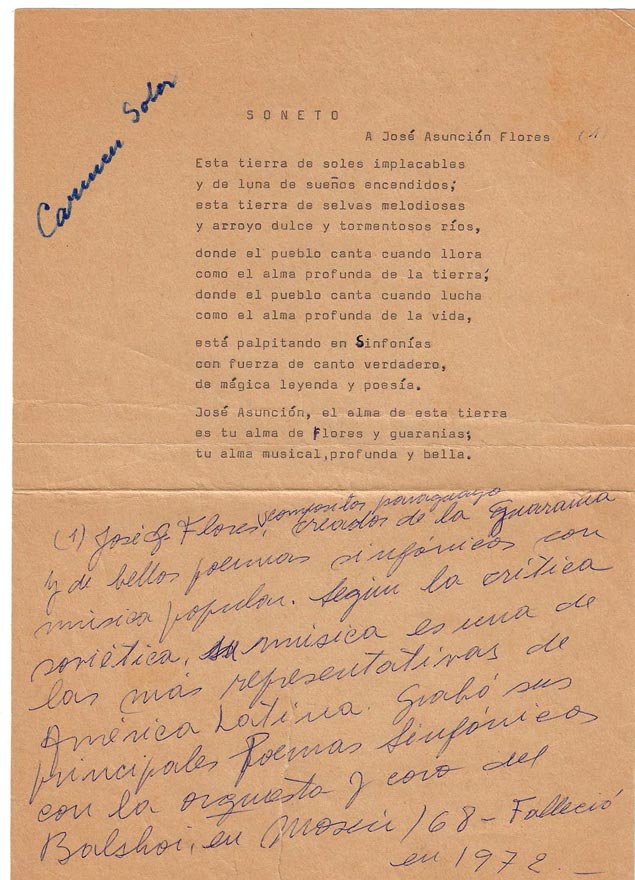 Carmen Soler
SONETO
A José Asunción Flores (1)
Esta tierra de soles implacables
y de luna de sueños encendidos;
esta tierra de selvas melodiosas
y arroyo dulce y tormentosos ríos,
donde el pueblo canta cuando llora
como el alma profunda de la tierra;
donde el pueblo canta cuando lucha
como el alma profunda de la vida,
está palpitando en Sinfonías
con fuerza de canto verdadero,
de mágica leyenda y poesía.
José Asunción, el alma de esta tierra
es tu alma de Flores y guaranias;
tu alma musical,profunda y bella.
compositor paraguayo
(1) José Flores, creador de la guarania
y de bellos poemas sinfónicos con
música popular. Según la crítica
soviética, su música es una de
las más representativas de
América Latina. Grabó sus
principales Poemas Sinfónicos
con la orquesta y coro del
Balshoi, en Moscú /68 - Falleció
en 1972. —